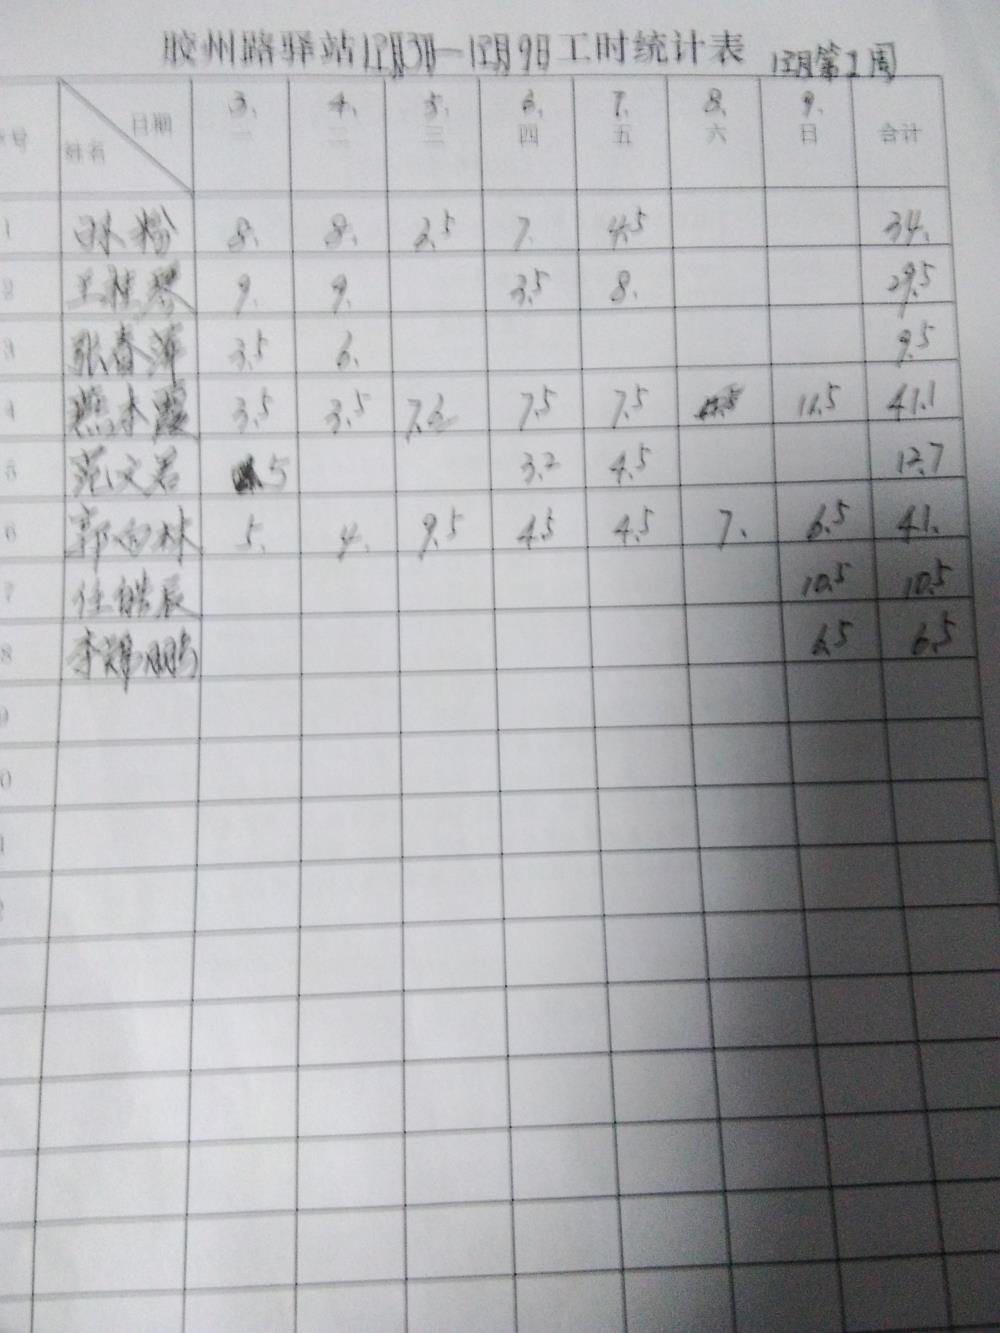 胶州路驿站12月3日—12月9日工时统计表 12月第2周
号 日期 姓名 3. 一 4. 二 5. 三 6. 四 7. 五 8. 六 9. 日 合计
1 粉 8. 8. 7. 4.5 34.
2 王桂琴 9. 9. 3.5 8. 29.5
3 张春萍 3.5 6. 9.5
4 燕木霞 3.5 3.5 7.6 7.5 7.5 11.5 41.1
5 范文君 5 3.2 4.5 12.7
6 郭向林 5. 4. 9.5 4.5 4.5 7. 6.5 41.
7 任皓辰 10.5 10.5
8 李 鹏 6.5 6.5
9
0
1
2